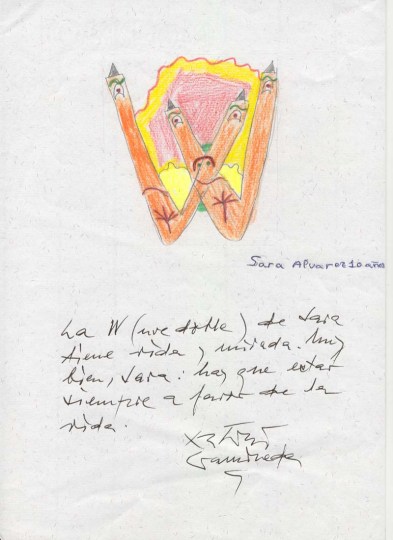 Sara Alvarez 10 años
La W (uve doble) de Sara
tiene vida y mirada. Muy
bien, Sara: hay que estar
siempre a favor de la
vida.